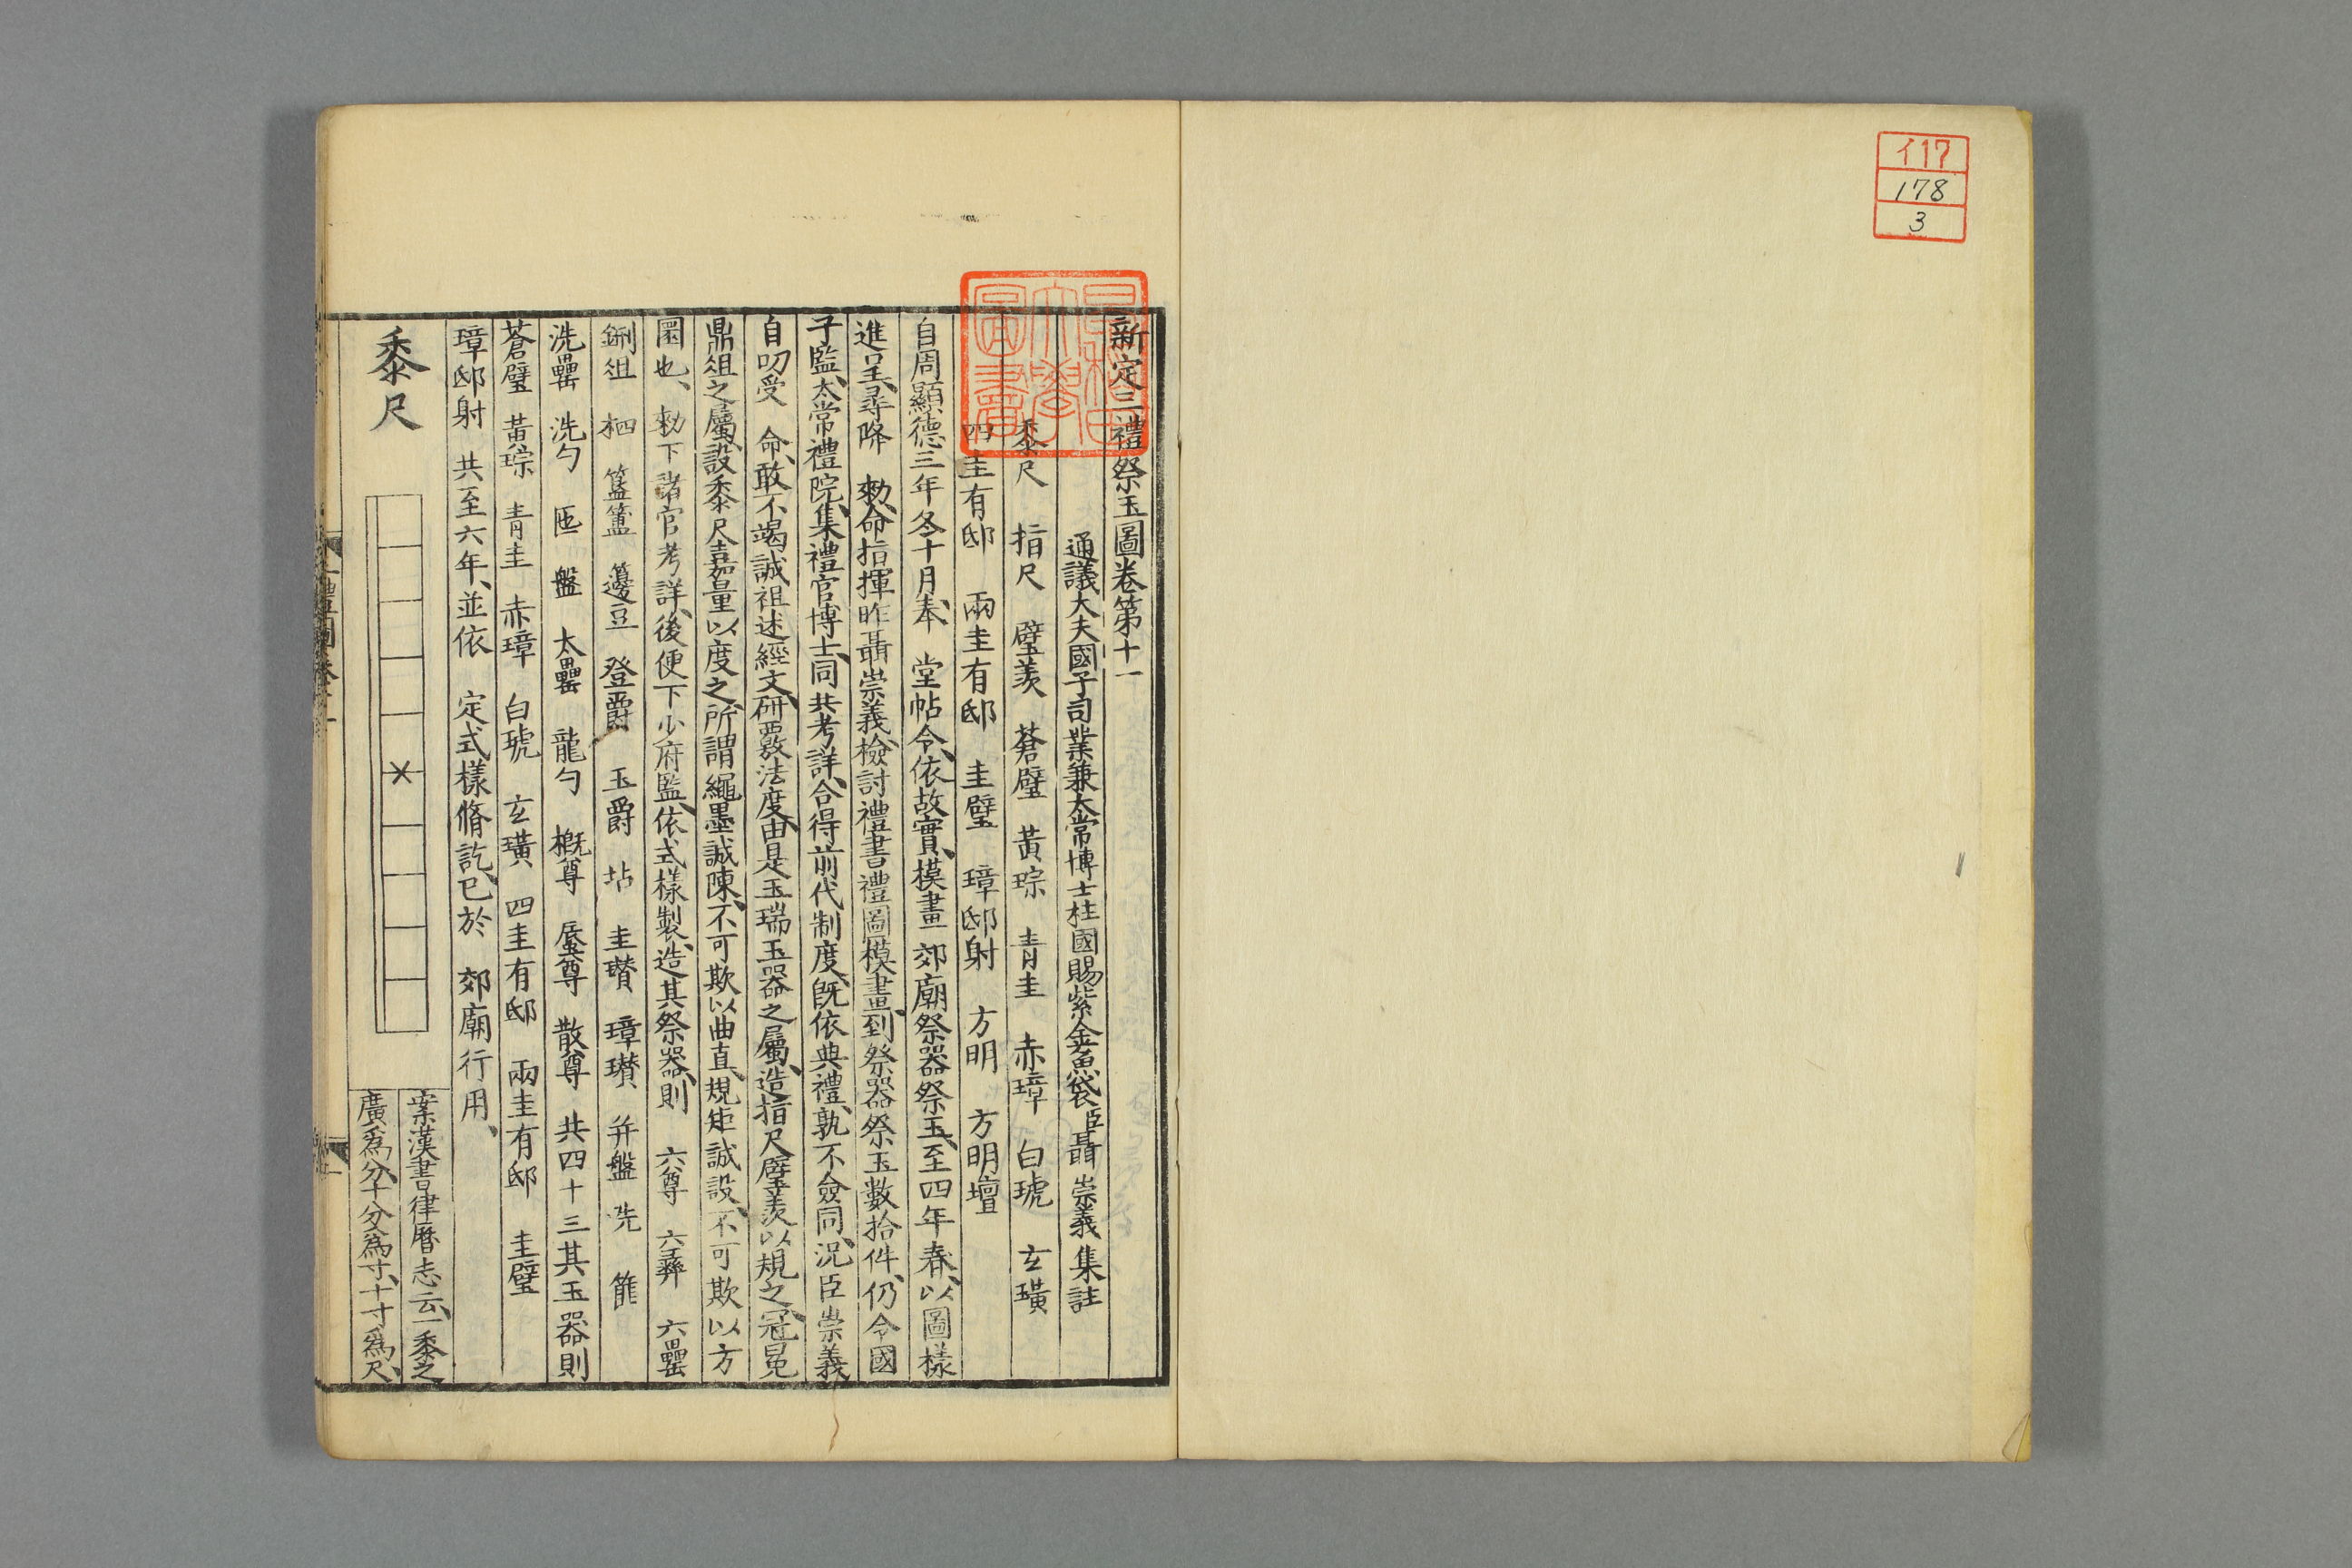 イ17
178
3
早稲田大學圖書
新定三禮祭玉圖卷第十一
通議大夫國子司業兼太常博士柱國賜紫金魚袋臣聶崇義集註
黍尺 指尺 璧羨 蒼璧 黃琮 青圭 赤璋 白琥 玄璜
四圭有邸 兩圭有邸 圭璧 璋邸射 方明 方明壇
自周顯德三年冬十月奉、 堂帖令、依故實、模畫 郊廟祭器祭玉、至四年春、以圖樣
進呈、尋降 勑、命指揮、昨聶崇義、檢討禮書禮圖、模畫到祭器祭玉數拾件、仍令國
子監、太常禮院、集禮官博士、同共考詳、合得前代制度、既依典禮、孰不僉同、況臣崇義
自叨受 命、敢不竭誠、祖述經文、研覈法度、由是玉瑞玉器之屬、造指尺璧羨以規之、冠冕
鼎俎之屬、設黍尺嘉量以度之、所謂繩墨誠陳、不可欺以曲直、規矩誠設、不可欺以方
圜也、 勑下諸官考詳、後便下少府監、依式樣製造、其祭器、則 六尊 六彝 六罍
鉶俎 柶 簠簋 籩豆 登爵 玉爵 坫 圭瓚 璋瓚 并盤 洗 篚
洗罍 洗勺 匜 盤 太罍 龍勺 概尊 蜃尊 散尊 共四十三其玉器則
蒼璧 黃琮 青圭 赤璋 白琥 玄璜 四圭有邸 兩圭有邸 圭璧
璋邸射 共至六年、並依 定式樣脩訖、已於 郊廟行用、
黍尺
案漢書律曆志云、一黍之
廣爲分、十分爲寸、十寸爲尺、